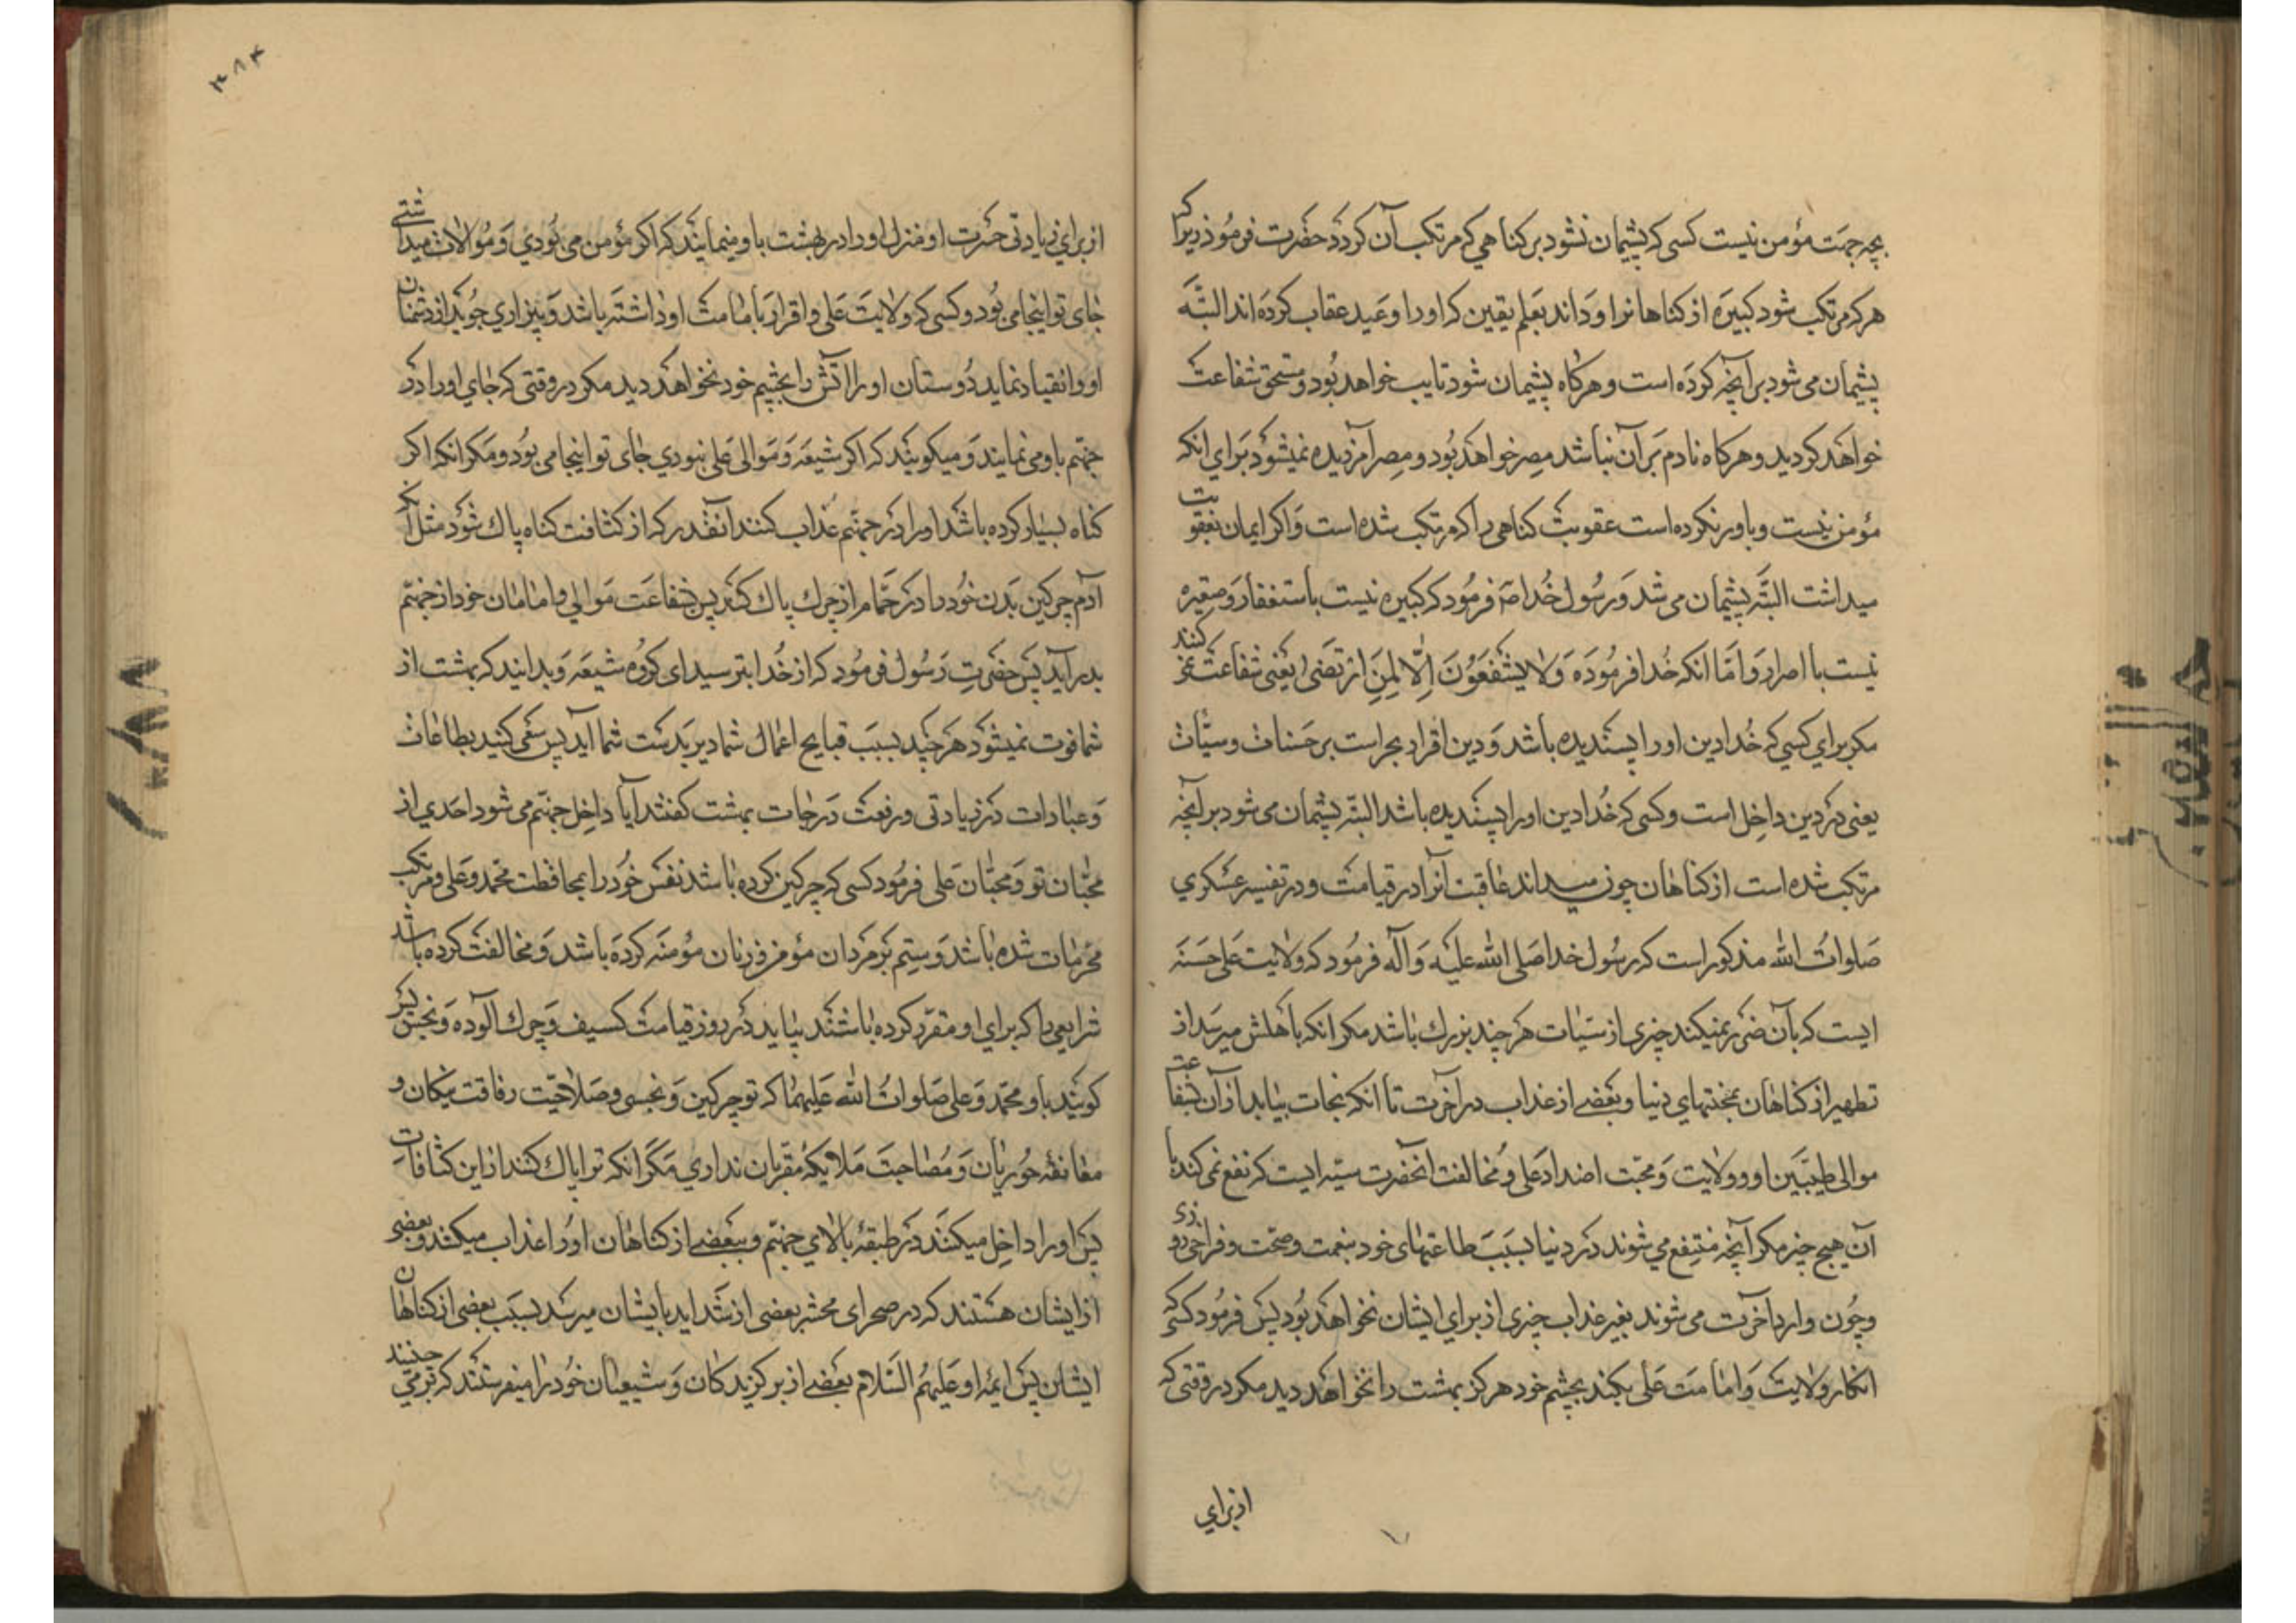 بچه جهت مؤمن نیست کسی که پشیمان نشود بر کناهی که مرتکب آن کردد حضرت فرموذ زیرا که
هر که مرتکب شود کبیره از کناهانرا و داند بعلم یقین که او را وعید عقاب کرده اند البته
پشیمان می شود بر آنچه کرده است و هرکاه پشیمان شود تایب خواهد بود و مستحق شفاعت
خواهد کردید و هرکاه نادم بر آن نباشد مصر خواهد بود و مصر امرزیده نمیشود برای انکه
مؤمن نیست و باور نکرده است عقوبت کناهی را که مرتکب شده است و اکر ایمان بعقوبت
میداشت البته پشیمان می شد و رسول خدا صَ فرمود که کبیره نیست با استغفار و صغیره
نیست با اصرار و امّا انکه خدا فرموده وَلا یَشْفَعُونَ اِلّا لِمَنِ ارْتَضی یعنی شفاعت نمیکنند
مکر برای کسی که خدا دین او را پسندیده باشد و دین اقرار بجزاست بر حسنات و سیّئات
یعنی در دین داخل است و کسی که خدا دین او را پسندیده باشد البته پشیمان می شود بر آنچه
مرتکب شده است از کناهان چون میداند عاقبت آنرا در قیامت و در تفسیر عسکری
صلوات الله مذکور است که رسول خدا صلی الله علیه و آله فرمود که ولایت علی حسنه
ایست که بآن ضرر نمیکند چیزی از سیئات هر چند بزرك باشد مکر انکه باهلش میرسد از
تطهیر از کناهان بمحنتهای دنیا و بعضے از عذاب در آخرت تا انکه نجات بیابد از آن بشفاعت
موالی طیّبین او و ولایت و محبّت اضداد علی و مخالفت انحضرت سیّئه ایست که نفع نمی کند با
آن هیچ چیز مکر آنچه منتفع می شوند در دنیا بسبب طاعتهای خود بنعمت و صحّت و فراخی روزی
و چون وارد آخرت می شوند بغیر عذاب چیزی از برای ایشان نخواهد بود پس فرمود کسی که
انکار ولایت و امامت علی بکند بچشم خود هرکز بهشت را نخواهد دید مکر در وقتی که
از برای
۳۸۴
از برای زیادتی حسرت او منزل او را در بهشت باو مینمایند که اکر مؤمن می بودی و موالات میداشتے
جای تو اینجا می بود و کسی که ولایت علی و اقرار بامامت او داشته باشد و بیزاری جوید از دشمنان
او و انقیاد نماید دوستان او را آتش را بچشم خود نخواهد دید مکر در وقتی که جای او را در
جهنّم باو می نمایند و میکویند که اکر شیعه و موالی علی نبودی جای تو اینجا می بود و مکر انکه اکر
کناه بسیار کرده باشد او را در جهنّم عذاب کنند انقدر که از کثافت کناه پاك شود مثل آنکه
آدم چرکین بدن خود را در حمّام از چرك پاك کند پس بشفاعت موالی و امامان خود از جهنّم
بدر آید پس حضرت رسول فرمود که از خدا بترسید ای کروه شیعه و بدانید که بهشت از
شما فوت نمیشود هر چند بسبب قبایح اعمال شما دیر بدست شما آید پس سعی کنید بطاعات
و عبادات در زیادتی و رفعت درجات بهشت کفتند آیا داخل جهنّم می شود احدی از
محبّان تو و محبّان علی فرمود کسی که چرکین کرده باشد نفس خود را بمخالفت محمد و علی و مرتکب
محرّمات شده باشد و ستم بر مردان مؤمن و زنان مؤمنه کرده باشد و مخالفت کرده باشد
شرایعی را که برای او مقرّر کرده باشند بیاید در روز قیامت کسیف و چرك آلوده و نجس پس
کویند باو محمّد و علی صلوات الله علیهما که تو چرکین و نجسی و صلاحیّت رفاقت نیکان و
معانقهٔ حوریان و مصاحبت ملایکهٔ مقربان نداری مکر انکه ترا پاك کنند از این کثافات
پس او را داخل میکنند در طبقهٔ بالای جهنّم و ببعضے از کناهان او را عذاب میکنند و بعضی
از ایشان هستند که در صحرای محشر بعضی از شداید بایشان میرسد بسبب بعضی از کناهان
ایشان پس ایمّه او علیهم السّلام بعضے از برکزیدکان و شیعیان خود را میفرستند که بر می چنیند